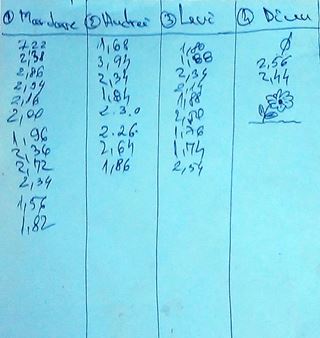 ① Mandare ② Andrei ③ Levi ④ Dinu
1,68 1,80 Ø
2,38 3,94 2,56
2,86 2,34 2,34 2,44
1,84 2,14
2,16 2.3.0 1,88
2,00
1,96 2.26 1,76
2,36 2,64 1,74
2,72 1,86 2,54
2,34
1,56
1,82